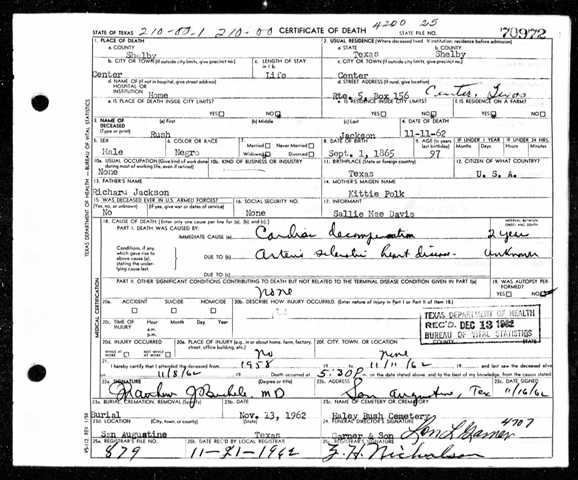 STATE OF TEXAS 210-00-1 210-00 CERTIFICATE OF DEATH 4200 25 STATE FILE NO. 70972
1. PLACE OF DEATH 2. USUAL RESIDENCE (Where deceased lived. If institution: residence before admission)
a. COUNTY Shelby a. STATE Texas b. COUNTY Shelby
b. CITY OR TOWN (If outside city limits, give precinct no.) c. LENGTH OF STAY in 1 b c. CITY OR TOWN (If outside city limits, give precinct no.)
Center Life Center
d. NAME OF (If not in hospital, give street address) HOSPITAL OR INSTITUTION Home d. STREET ADDRESS (If rural, give location) Rte. 5, Box 156 Center, Texas
e. IS PLACE OF DEATH INSIDE CITY LIMITS? YES NO e. IS RESIDENCE INSIDE CITY LIMITS? YES NO f. IS RESIDENCE ON A FARM? YES NO
3. NAME OF DECEASED (Type or print) (a) First (b) Middle (c) Last 4. DATE OF DEATH
Rush Jackson 11-11-62
5. SEX 6. COLOR OR RACE 7. Married Never Married Widowed Divorced 8. DATE OF BIRTH 9. AGE (In years last birthday) IF UNDER 1 YEAR Months Days IF UNDER 24 HRS. Hours Min.
Male Negro Sept. 1, 1865 97
10a. USUAL OCCUPATION (Give kind of work done during most of working life, even if retired) 10b. KIND OF BUSINESS OR INDUSTRY 11. BIRTHPLACE (State or foreign country) 12. CITIZEN OF WHAT COUNTRY?
None Texas U. S. A.
13. FATHER'S NAME 14. MOTHER'S MAIDEN NAME
Richard Jackson Kittie Polk
15. WAS DECEASED EVER IN U.S. ARMED FORCES? (Yes, no, or unknown) (If yes, give war or dates of service) 16. SOCIAL SECURITY NO. 17. INFORMANT
No None Sallie Mae Davis
18. CAUSE OF DEATH (Enter only one cause per line for (a), (b), and (c).) INTERVAL BETWEEN ONSET AND DEATH
PART I. DEATH WAS CAUSED BY:
IMMEDIATE CAUSE (a) Cardiac decompensation 2 year
Conditions, if any, which gave rise to above cause (a), stating the underlying cause last. DUE TO (b) Arterio sclerotic heart disease Unknown
DUE TO (c)
PART II. OTHER SIGNIFICANT CONDITIONS CONTRIBUTING TO DEATH BUT NOT RELATED TO THE TERMINAL DISEASE CONDITION GIVEN IN PART I(a) 19. WAS AUTOPSY PERFORMED?
none YES NO
20a. ACCIDENT SUICIDE HOMICIDE 20b. DESCRIBE HOW INJURY OCCURRED. (Enter nature of injury in Part I or Part II of item 18.)
20c. TIME OF INJURY Hour a.m. p.m. Month Day Year
TEXAS DEPARTMENT OF HEALTH
REC'D. DEC 13 1962
BUREAU OF VITAL STATISTICS
20d. INJURY OCCURRED WHILE AT WORK NOT WHILE AT WORK 20e. PLACE OF INJURY (e.g., in or about home, farm, factory, street, office building, etc.) 20f. CITY, TOWN, OR LOCATION COUNTY STATE
No none
21. I hereby certify that I attended the deceased from 1958 to 11/11/62 and last saw the deceased alive
on 11/8/62 Death occurred at 5:30P m. on the date stated above, and to the best of my knowledge, from the causes stated
22a. SIGNATURE MD 22b. ADDRESS San Augustine, Tex 22c. DATE SIGNED 11/16/62
23a. BURIAL, CREMATION, REMOVAL (Specify) 23b. DATE 23c. NAME OF CEMETERY OR CREMATORY
Burial Nov. 13, 1962 Haley Bush Cemetery
23d. LOCATION (City, town, or county) (State) 24. FUNERAL DIRECTOR'S SIGNATURE 4707
San Augustine Texas Warner & Son
25a. REGISTRAR'S FILE NO. 25b. DATE REC'D BY LOCAL REGISTRAR 25c. REGISTRAR'S SIGNATURE
879 11-21-1962 Z. H. Nicholson
TEXAS DEPARTMENT OF HEALTH—BUREAU OF VITAL STATISTICS
MEDICAL CERTIFICATION
VS-112 REV. 1/58